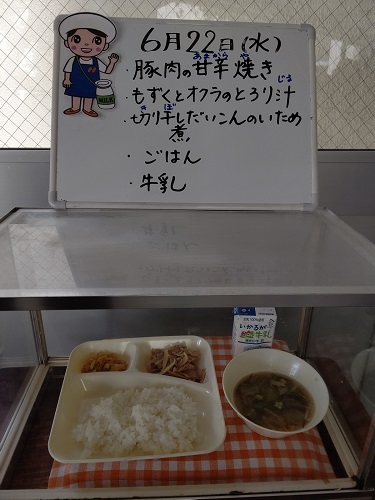 6月22日(水)
・豚肉の甘辛焼き
あまから や
・もずくとオクラのとろり汁
じる
・切り干しだいこんのいため煮
き ぼ
・ごはん
・牛乳
MILK
いかるが
牛乳